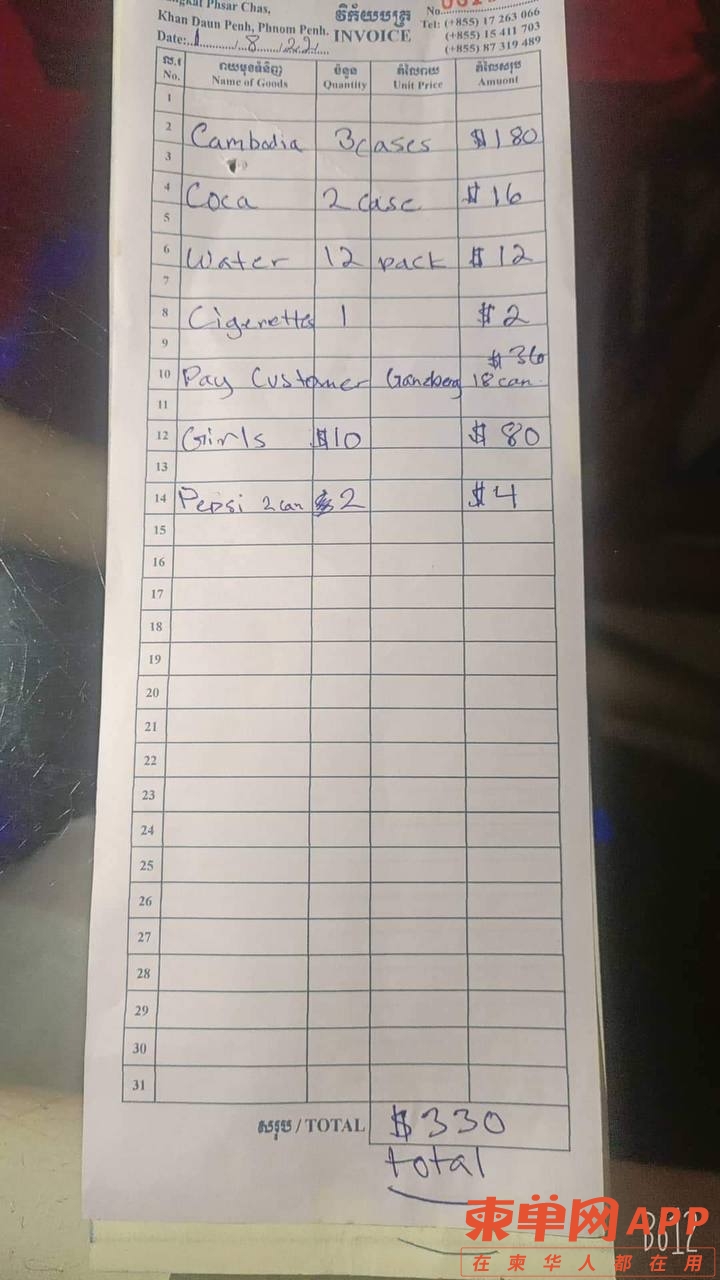 Phsar Chas,
Khan Daun Penh, Phnom Penh.
Date: 1/8/22
វិក័យបត្រ
INVOICE
No.
Tel: (+855) 17 263 066
(+855) 15 411 703
(+855) 87 319 489
ល.រ រាយមុខទំនិញ ចំនួន តំលៃរាយ តំលៃសរុប
No. Name of Goods Quantity Unit Price Amuont
1
2 Cambodia 3 cases $180
3
4 Coca 2 case $16
5
6 Water 12 pack $12
7
8 Cigenettes 1 $2
9 $36
10 Pay Customer Ganzberg 18 can
11
12 Girls $10 $80
13
14 Pepsi 2 can $2 $4
15
16
17
18
19
20
21
22
23
24
25
26
27
28
29
30
31
សរុប / TOTAL $330
total
柬单网APP
在柬华人都在用
B612